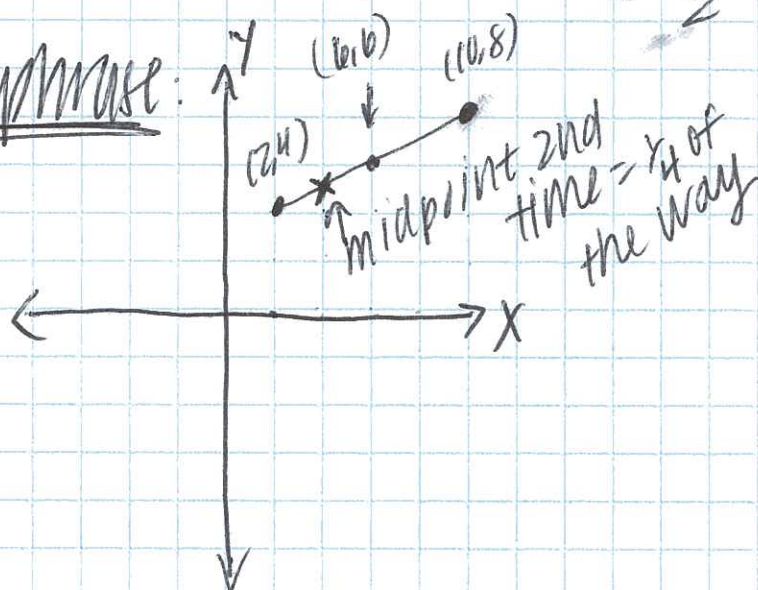 phrase:
Y
(6,6)
(10,8)
(2,4)
midpoint 2nd
time = 1/4 of
the way
X